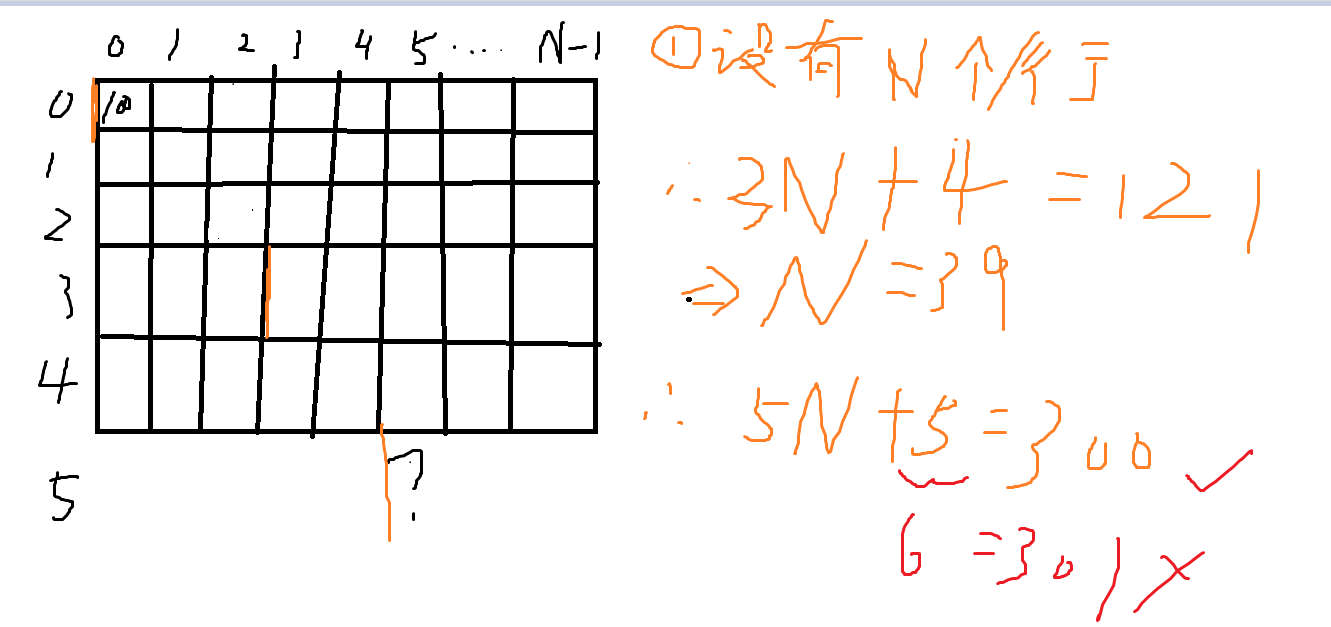 0 1 2 3 4 5 .... N-1
0 100
1
2
3
4
5 ?
①设有 N 个/行
∴ 3N + 4 = 121
⇒ N = 39
∴ 5N + 5 = 300 ✓
6 = 301 ×